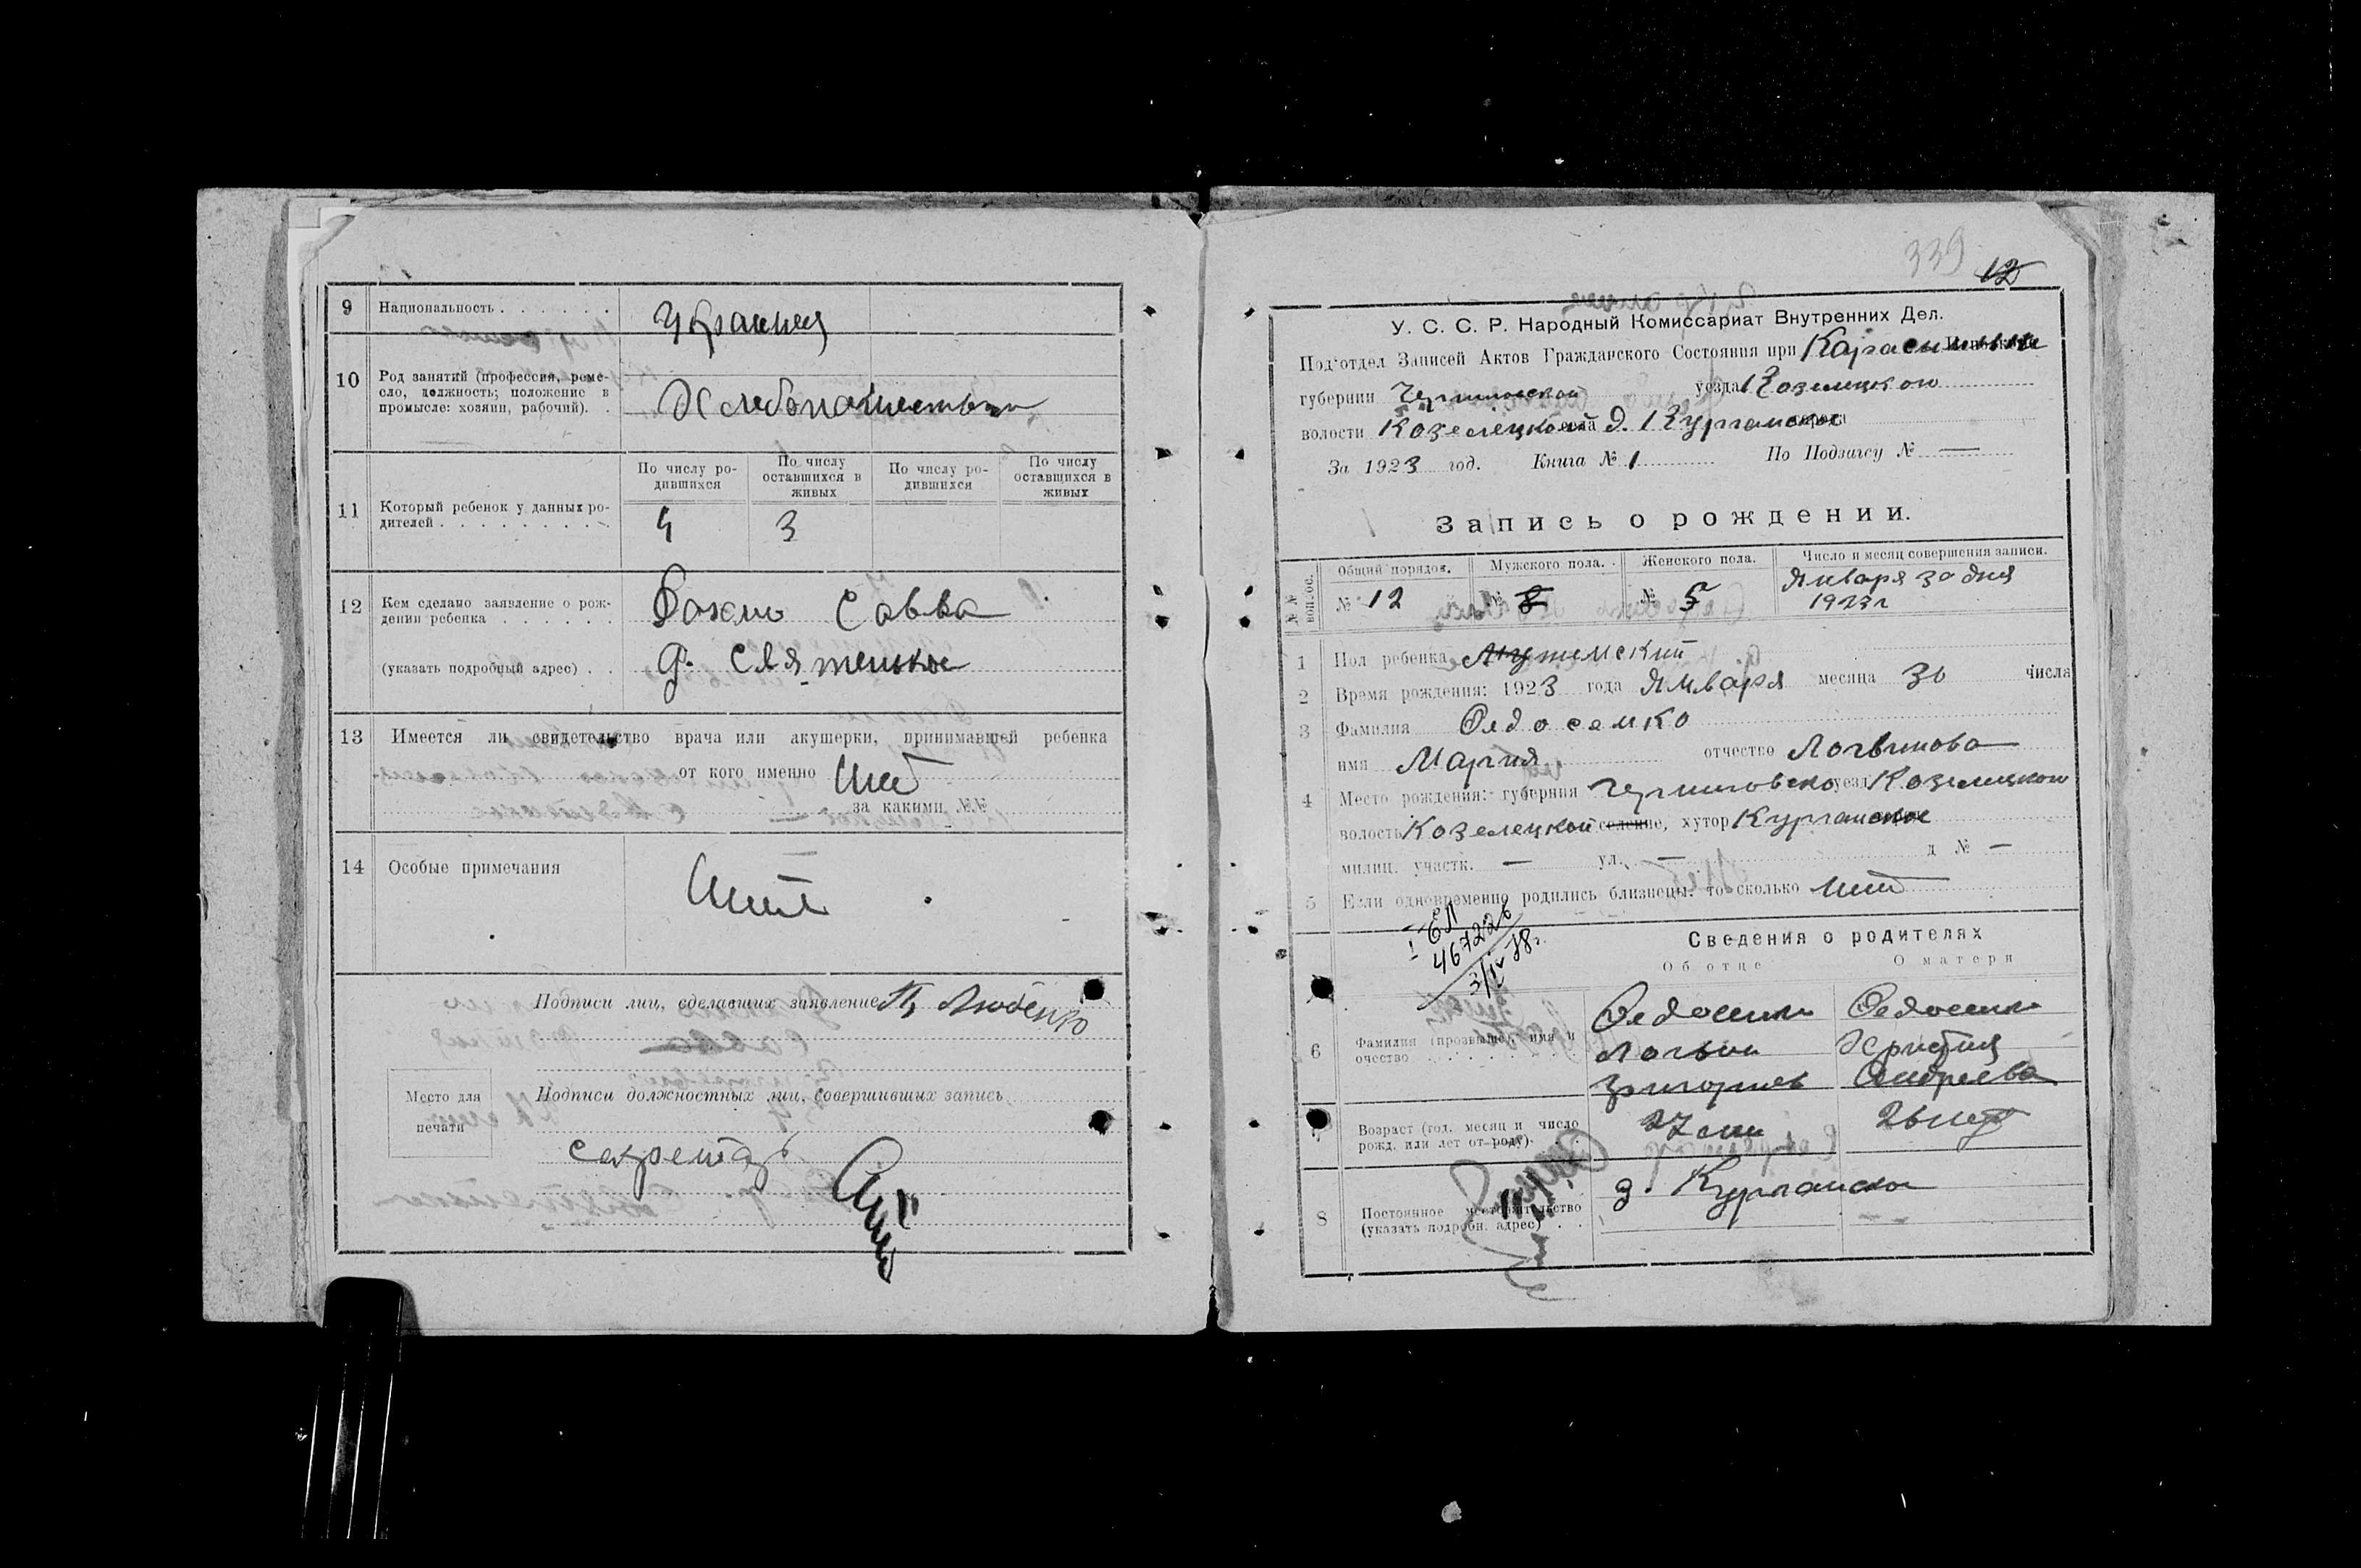 9 Национальность . . . . . . Украинец
10 Род занятий (профессия, реме-
сло, должность; положение в
промысле: хозяин, рабочий). . Хлебопашество
По числу ро-
дившихся
По числу
оставшихся в
живых
По числу ро-
дившихся
По числу
оставшихся в
живых
11 Который ребенок у данных ро-
дителей . . . . . . . . . 4 3
12 Кем сделано заявление о рож-
дении ребенка . . . . . . Савва
(указать подробный адрес) . . д.
13 Имеется ли свидетельство врача или акушерки, принимавшей ребенка
от кого именно Нет
за какими №№ —
14 Особые примечания Нет
Подписи лиц, сделавших заявление Любенко
Место для
печати
Подписи должностных лиц, совершивших запись
секретарь
339 12
У. С. С. Р. Народный Комиссариат Внутренних Дел.
Под'отдел Записей Актов Гражданского Состояния при
губернии Черниговской уезда Козелецкого
волости Козелецкой села д. Курганское
За 1923 год. Книга № 1 По Подзагсу № —
Запись о рождении.
№№ вопрос.
Общий порядок. Мужского пола. Женского пола. Число и месяц совершения записи.
№ 12 № 8 № 5 Января 30 дня
1923 г
1 Пол ребенка
2 Время рождения: 1923 года Января месяца 30 числа
3 Фамилия Федосенко
имя Мария отчество Логвинова
4 Место рождения: губерния Черниговской уезд Козелецкого
волость Козелецкой селение, хутор Курганское
милиц. участк. — ул. — д № —
5 Если одновременно родились близнецы: то сколько Нет
I ЕЛ
467226
3/IV 38г.
Сведения о родителях
Об отце О матери
6 Фамилия (прозвище), имя и
очество . . . . . . . .
Федосенко Федосенко
Логвин Христия
Григорьев Андреева
7 Возраст (год, месяц и число
рожд. или лет от роду). . . 27 лет 26 лет
8 Постоянное местожительство
(указать подробн. адрес) . . д. Курганское